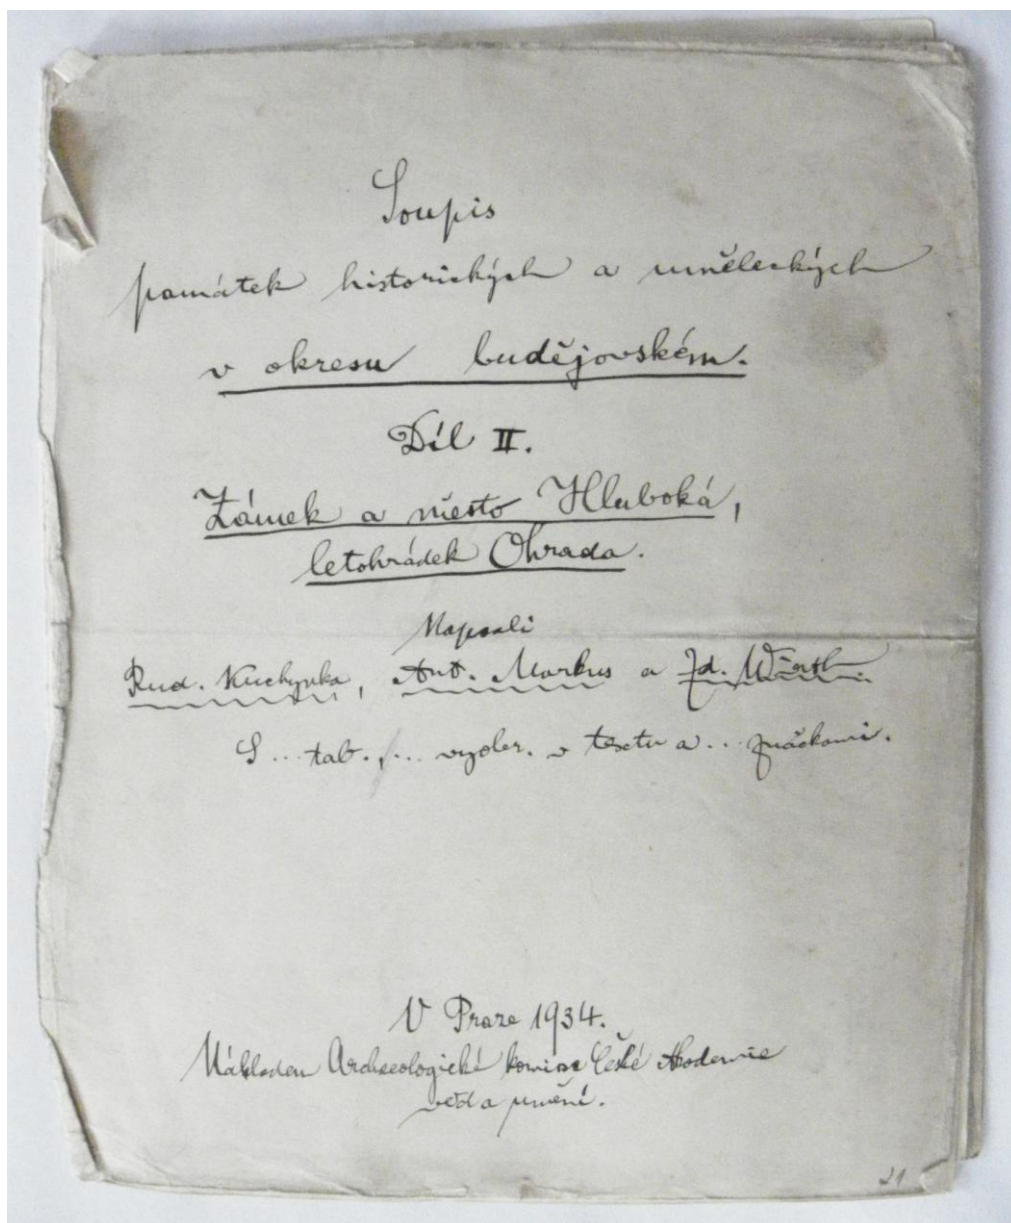 Soupis
památek historických a uměleckých
v okresu budějovském.
Díl II.
Zámek a město Hluboká,
letohrádek Ohrada.
Napsali
Rud. Kuchynka, Ant. Markus a Zd. Wirth
S ... tab., ... vyobr. v textu a .. značkami.
V Praze 1934.
Nákladem Archaeologické komise České Akademie
věd a umění.
21